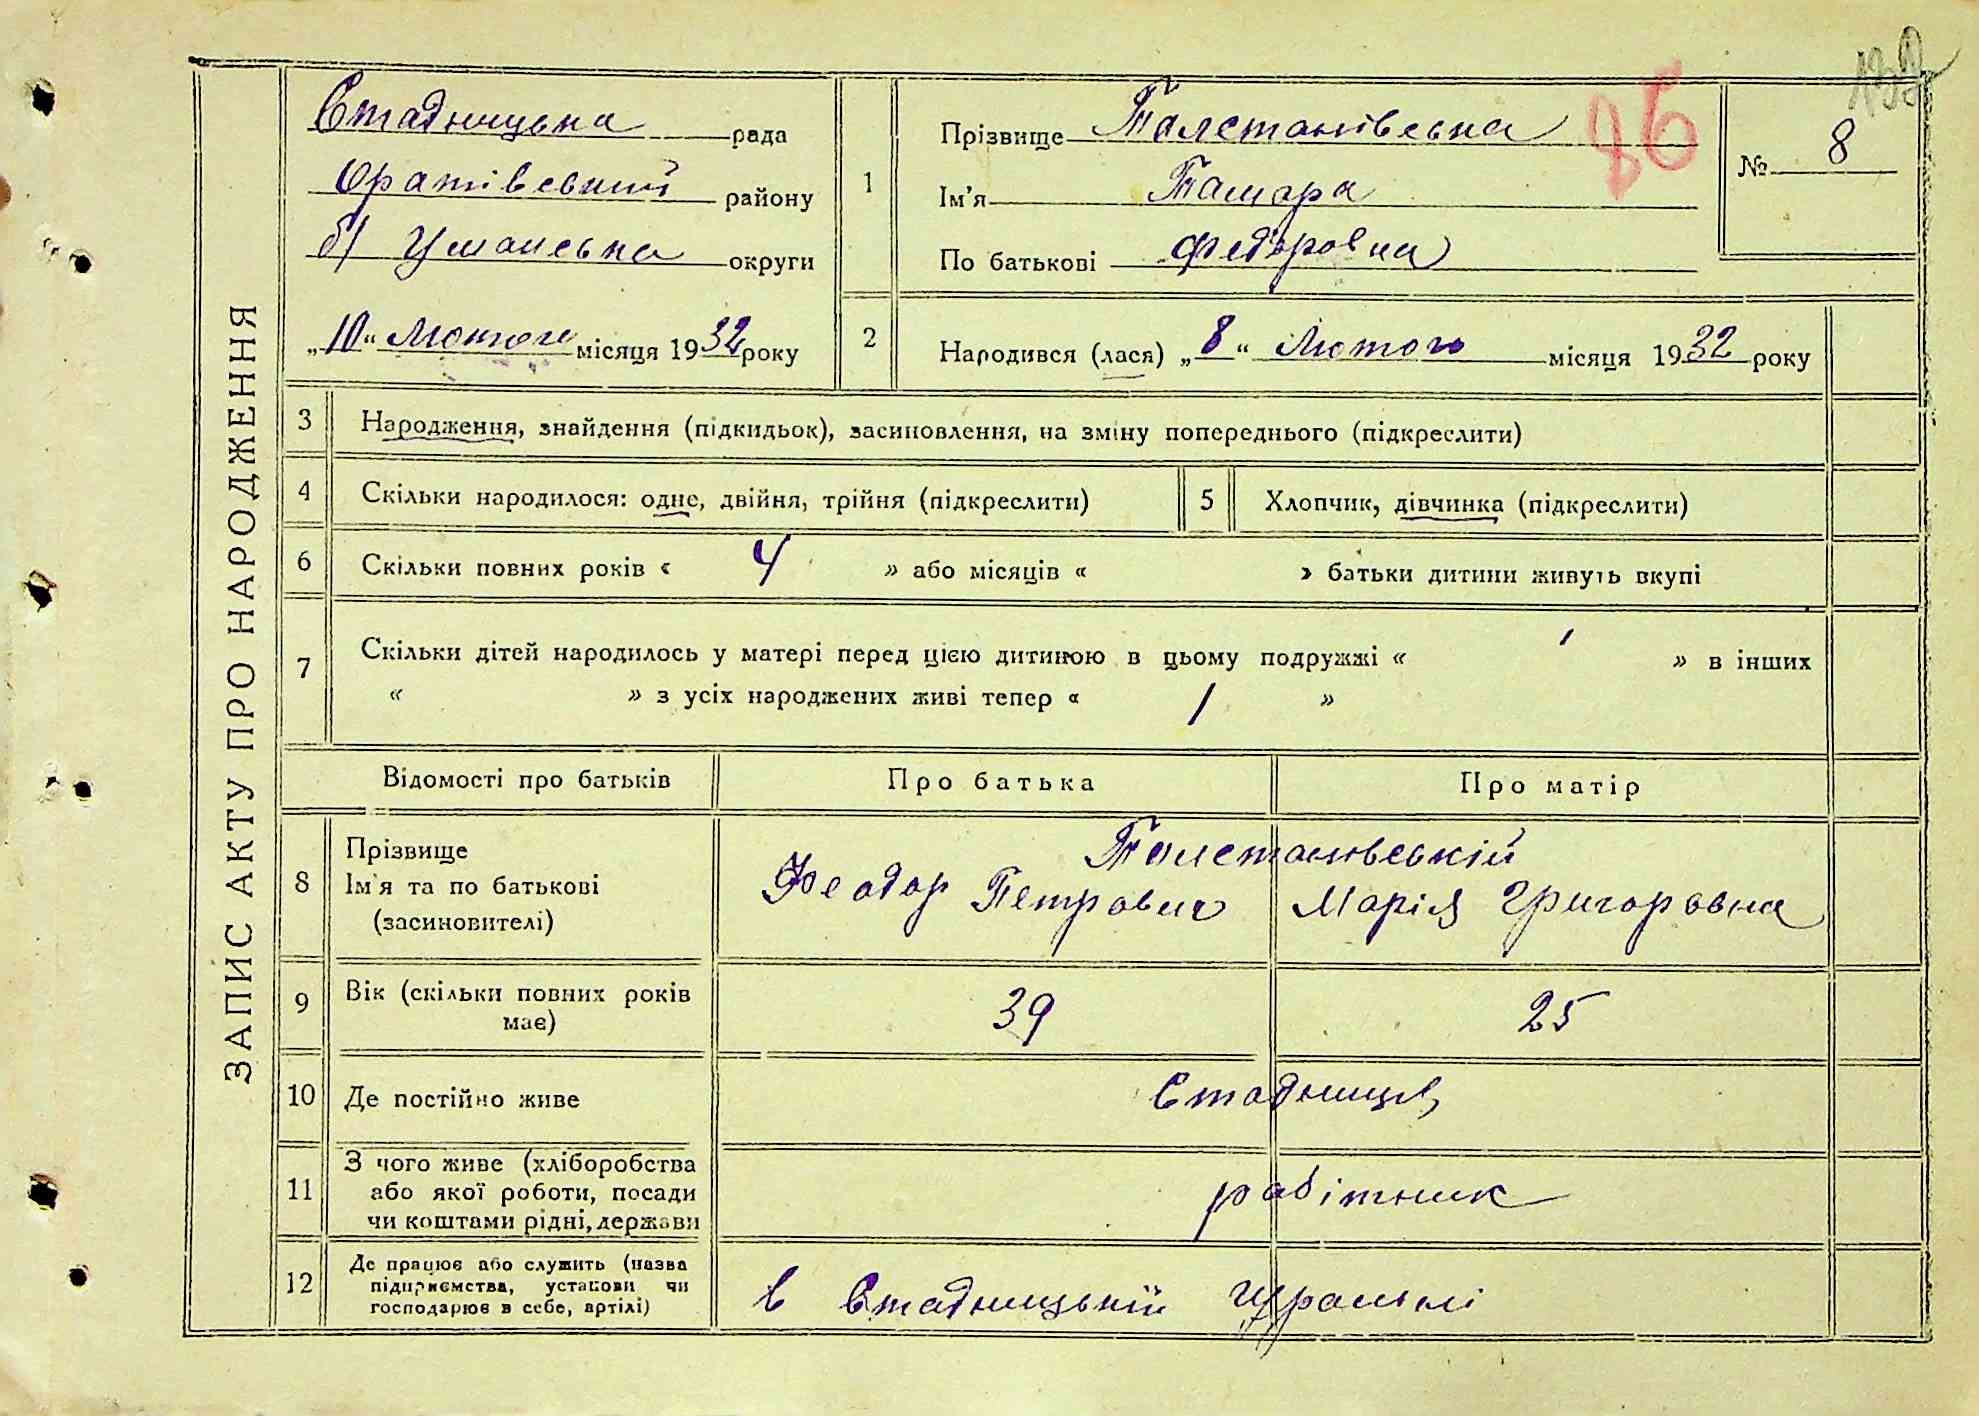 ЗАПИС АКТУ ПРО НАРОДЖЕННЯ
Стадницька рада
Оратівський району
б) Уманська округи
„10“ Лютого місяця 1932 року
1
Прізвище Талстанівська
Ім'я Тамара
По батькові Федоровна
86
№ 8
2
Народився (лася) „8“ Лютого місяця 1932 року
3
Народження, знайдення (підкидьок), засиновлення, на зміну попереднього (підкреслити)
4
Скільки народилося: одне, двійня, трійня (підкреслити)
5
Хлопчик, дівчинка (підкреслити)
6
Скільки повних років « 4 » або місяців « » батьки дитини живуть вкупі
7
Скільки дітей народилось у матері перед цією дитиною в цьому подружжі « 1 » в інших
« » з усіх народжених живі тепер « 1 »
Відомості про батьків
Про батька
Про матір
8
Прізвище
Ім'я та по батькові
(засиновителі)
Талстановський
Феодор Петрович
Марія Григоровна
9
Вік (скільки повних років
має)
39
25
10
Де постійно живе
Стадниця
11
З чого живе (хліборобства
або якої роботи, посади
чи коштами рідні, держави
рабітник
12
Де працює або служить (назва
підприємства, установи чи
господарює в себе, артілі)
в Стадницькій Гуральні